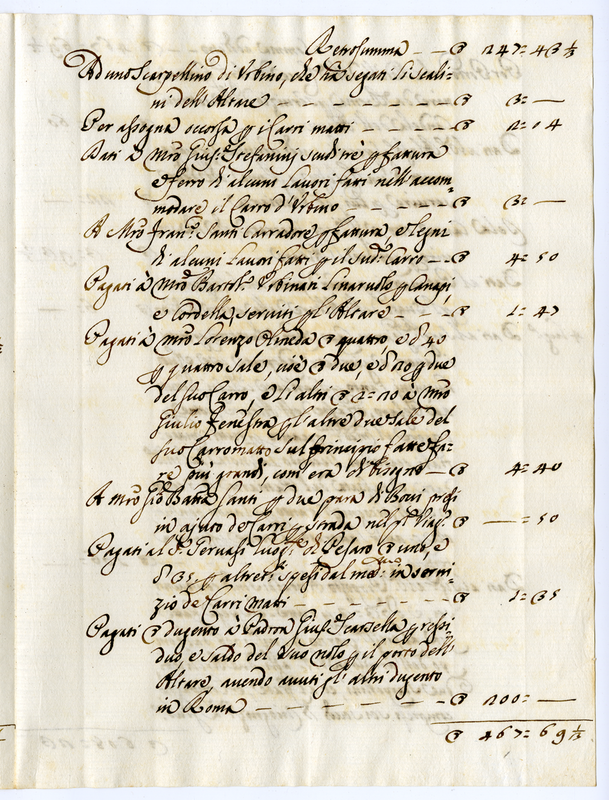 Retrosumma — — ∇ 247= 43 1/3
Ad uno Scarpellino di Urbino, che hà segati li Scali-
ni dell'Altare — — — — — — ∇ 3= —
Per assogna occorsa p i Carri matti — — — ∇ 2= 04
Dati à Mro Gius.e Stefanini scudi trè p fattura
e ferro di alcuni Lavori fatti nell'accom-
modare il Carro d'Urbino — — — — ∇ 3= —
A Mro Fran.o Santi Carradore p fattura, e legni
di alcuni Lavori fatti p il sud.o Carro — ∇ 4= 50
Pagati à Mro Bartol.o Urbinati Linarolo p Canapi,
e Cordella, serviti p l'Altare — — — ∇ 1= 47
Pagati à Mro Lorenzo Olineda ∇ quattro, e d 40
p quattro sale, cioè ∇ due, e d 20 p due
del suo Carro, e li altri ∇ 2= 20 à Mro
Giulio Fenestra p l'altre due sale del
suo Carromatto sul principio fatte fa-
re più grandi, com'era di bisogno — ∇ 4= 40
A Mro Gio: Batta Santi p due para di Bovi presi
in ajuto de Carri p strada nel p.o Viag.o ∇ — = 50
Pagati al S.r Gervasi Luog.te di Pesaro ∇ uno, e
d 35 p altreti spesi dal med.mo in servi-
zio de Carri Matti — — — — — — ∇ 1= 35
Pagati ∇ dugento à Padron Gius.e Scarsella p resi-
duo, e saldo del suo nolo p il porto dell'
Altare, avendo avuti gl'altri dugento
in Roma — — — — — — — ∇ 200= —
∇ 467= 69 1/3